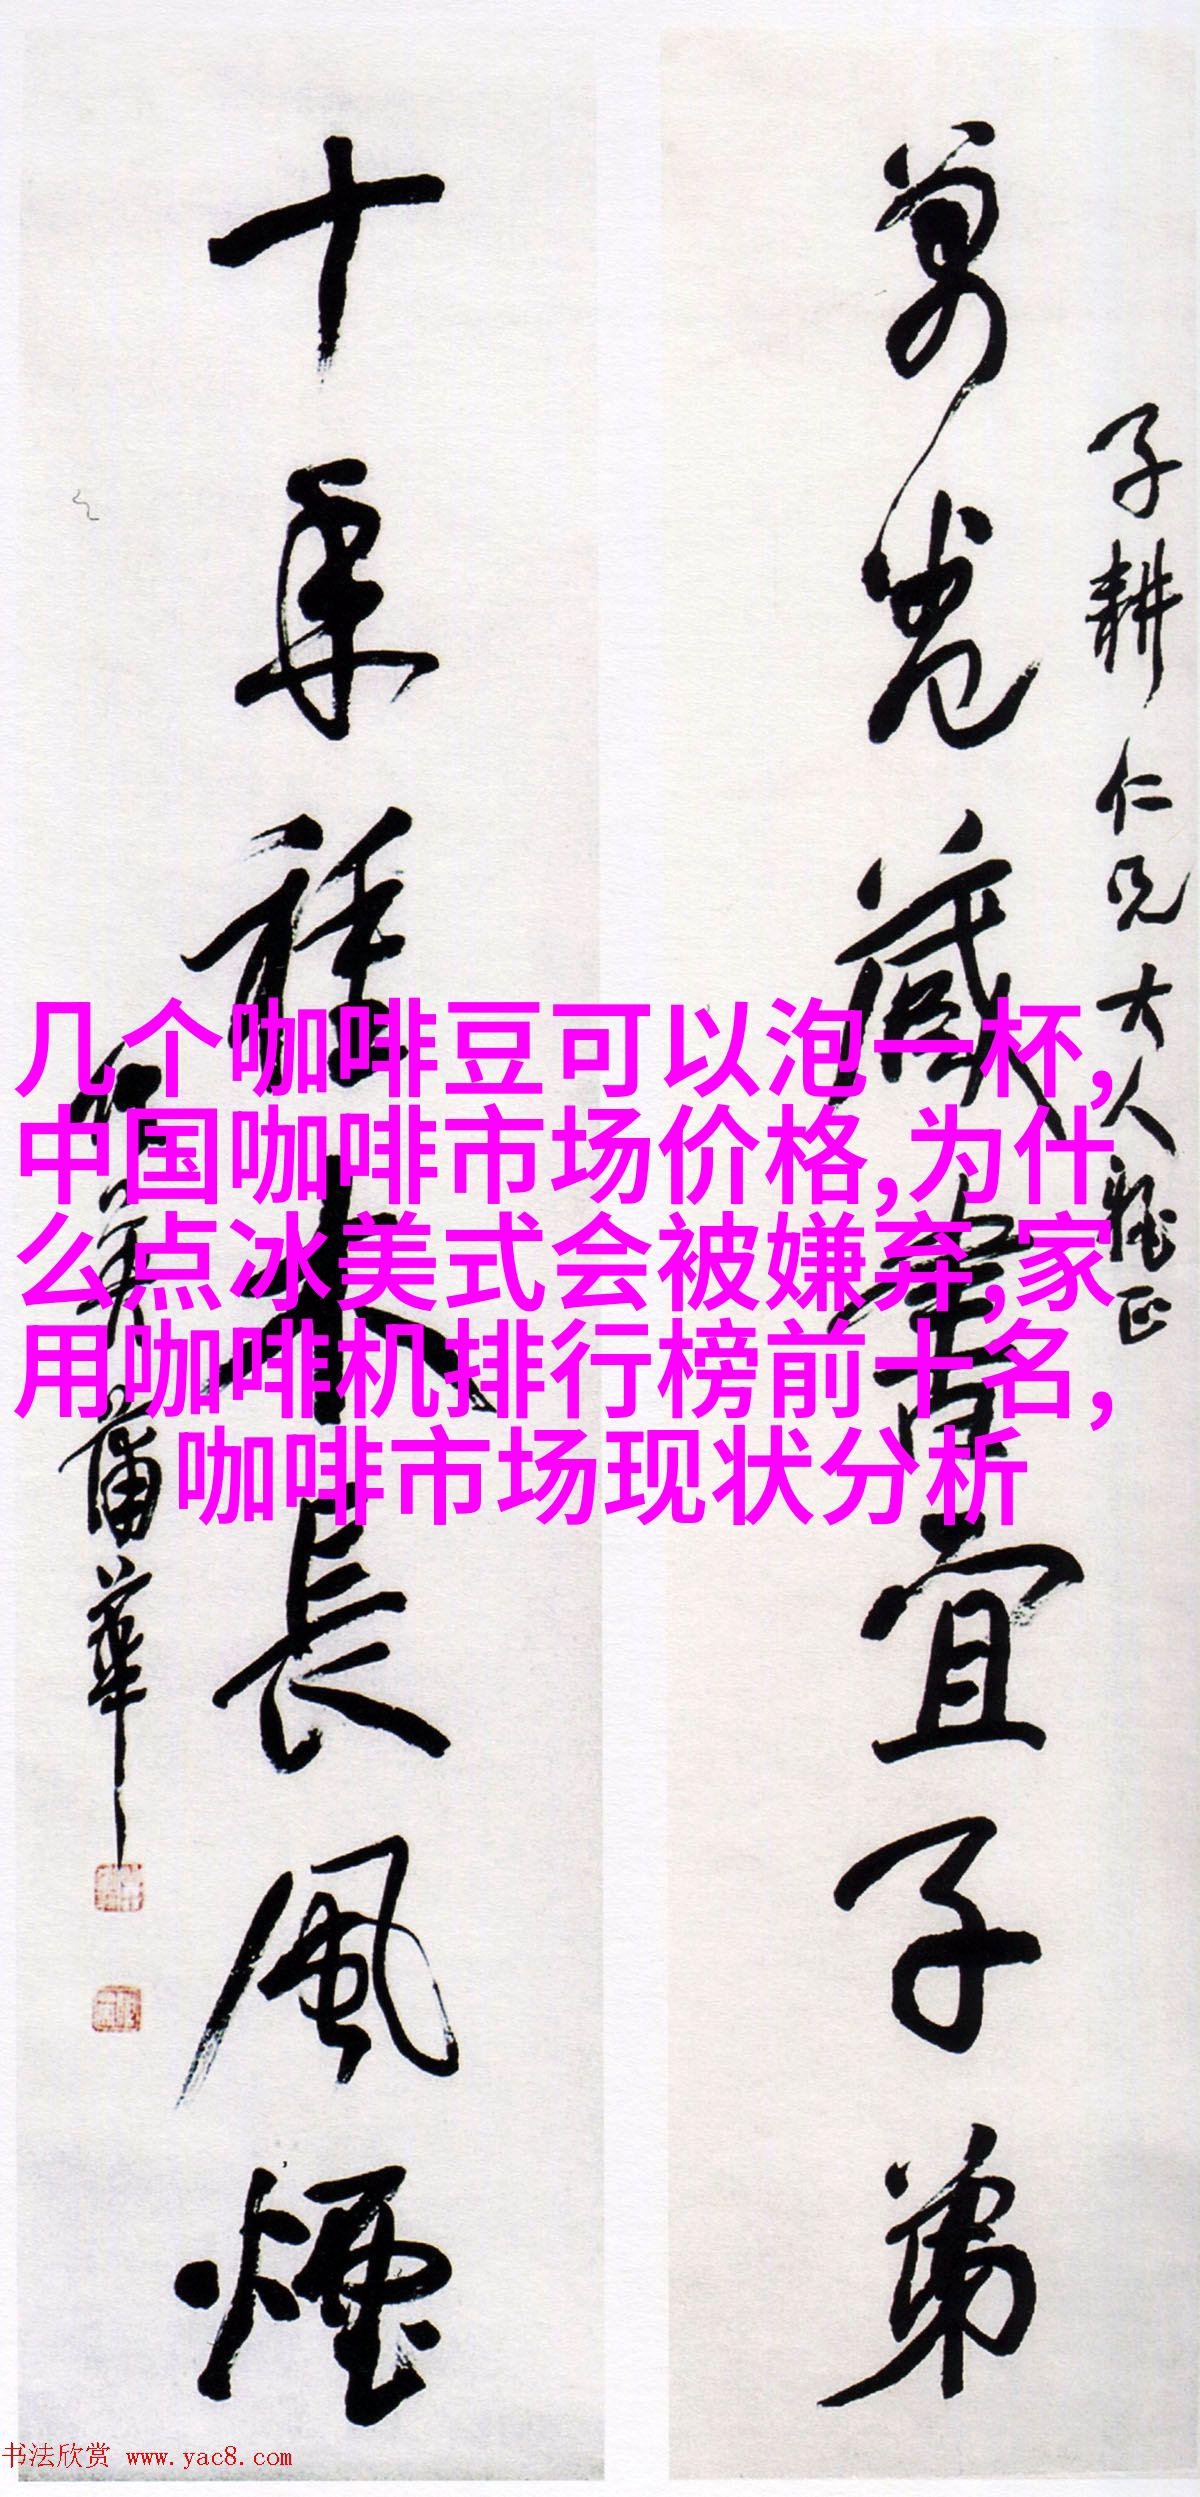 萬卷藏書宜子弟
子耕仁兄大人雅正
十年種木長風煙
蒲華
几个咖啡豆可以泡一杯,
中国咖啡市场价格,为什
么点冰美式会被嫌弃,家
用咖啡机排行榜前十名,
咖啡市场现状分析
书法欣赏 www.yac8.com